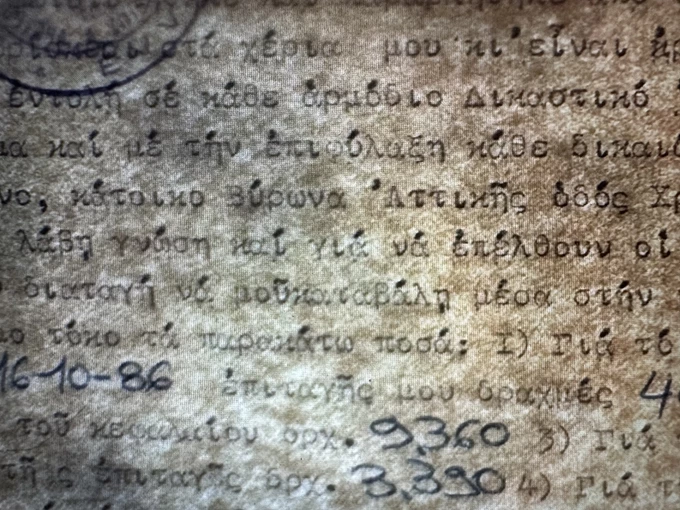 στά χέρια μου κι' εἶναι
ἐντολή σέ κάθε ἁρμόδιο Δικαστικό
καί μέ τήν ἐπιφύλαξη κάθε
κάτοικο Βύρωνα 'Αττικῆς ὁδός Χρ
λάβη γνώση καί γιά νά ἐπέλθουν οἱ
διαταγή νά μοῦκαταβάλη μέσα στήν
τόκο τά παρακάτω ποσά: Ι) Γιά τό
16-10-86 ἐπιταγῆς μου δραχμές
τοῦ κεφαλαίου δρχ. 9.360 3) Γιά
τῆς ἐπιταγῆς δρχ. 3.390 4) Γιά